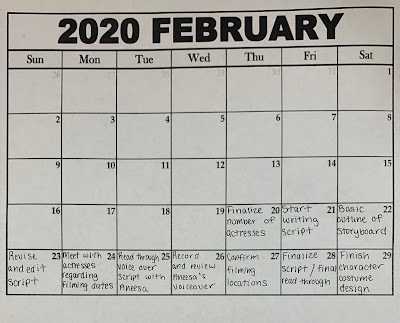 2020 FEBRUARY
Sun Mon Tue Wed Thu Fri Sat
26 27 28 29 30 31 1
2 3 4 5 6 7 8
9 10 11 12 13 14 15
16 17 18 19 20 21 22
Finalize number of actresses
Start writing script
Basic outline of storyboard
23 24 25 26 27 28 29
Revise and edit script
Meet with actresses regarding filming dates
Read through voice over script with Aneesa
Record and review Aneesa's voiceover
Confirm filming locations
Finalize script / final read through
Finish character costume design